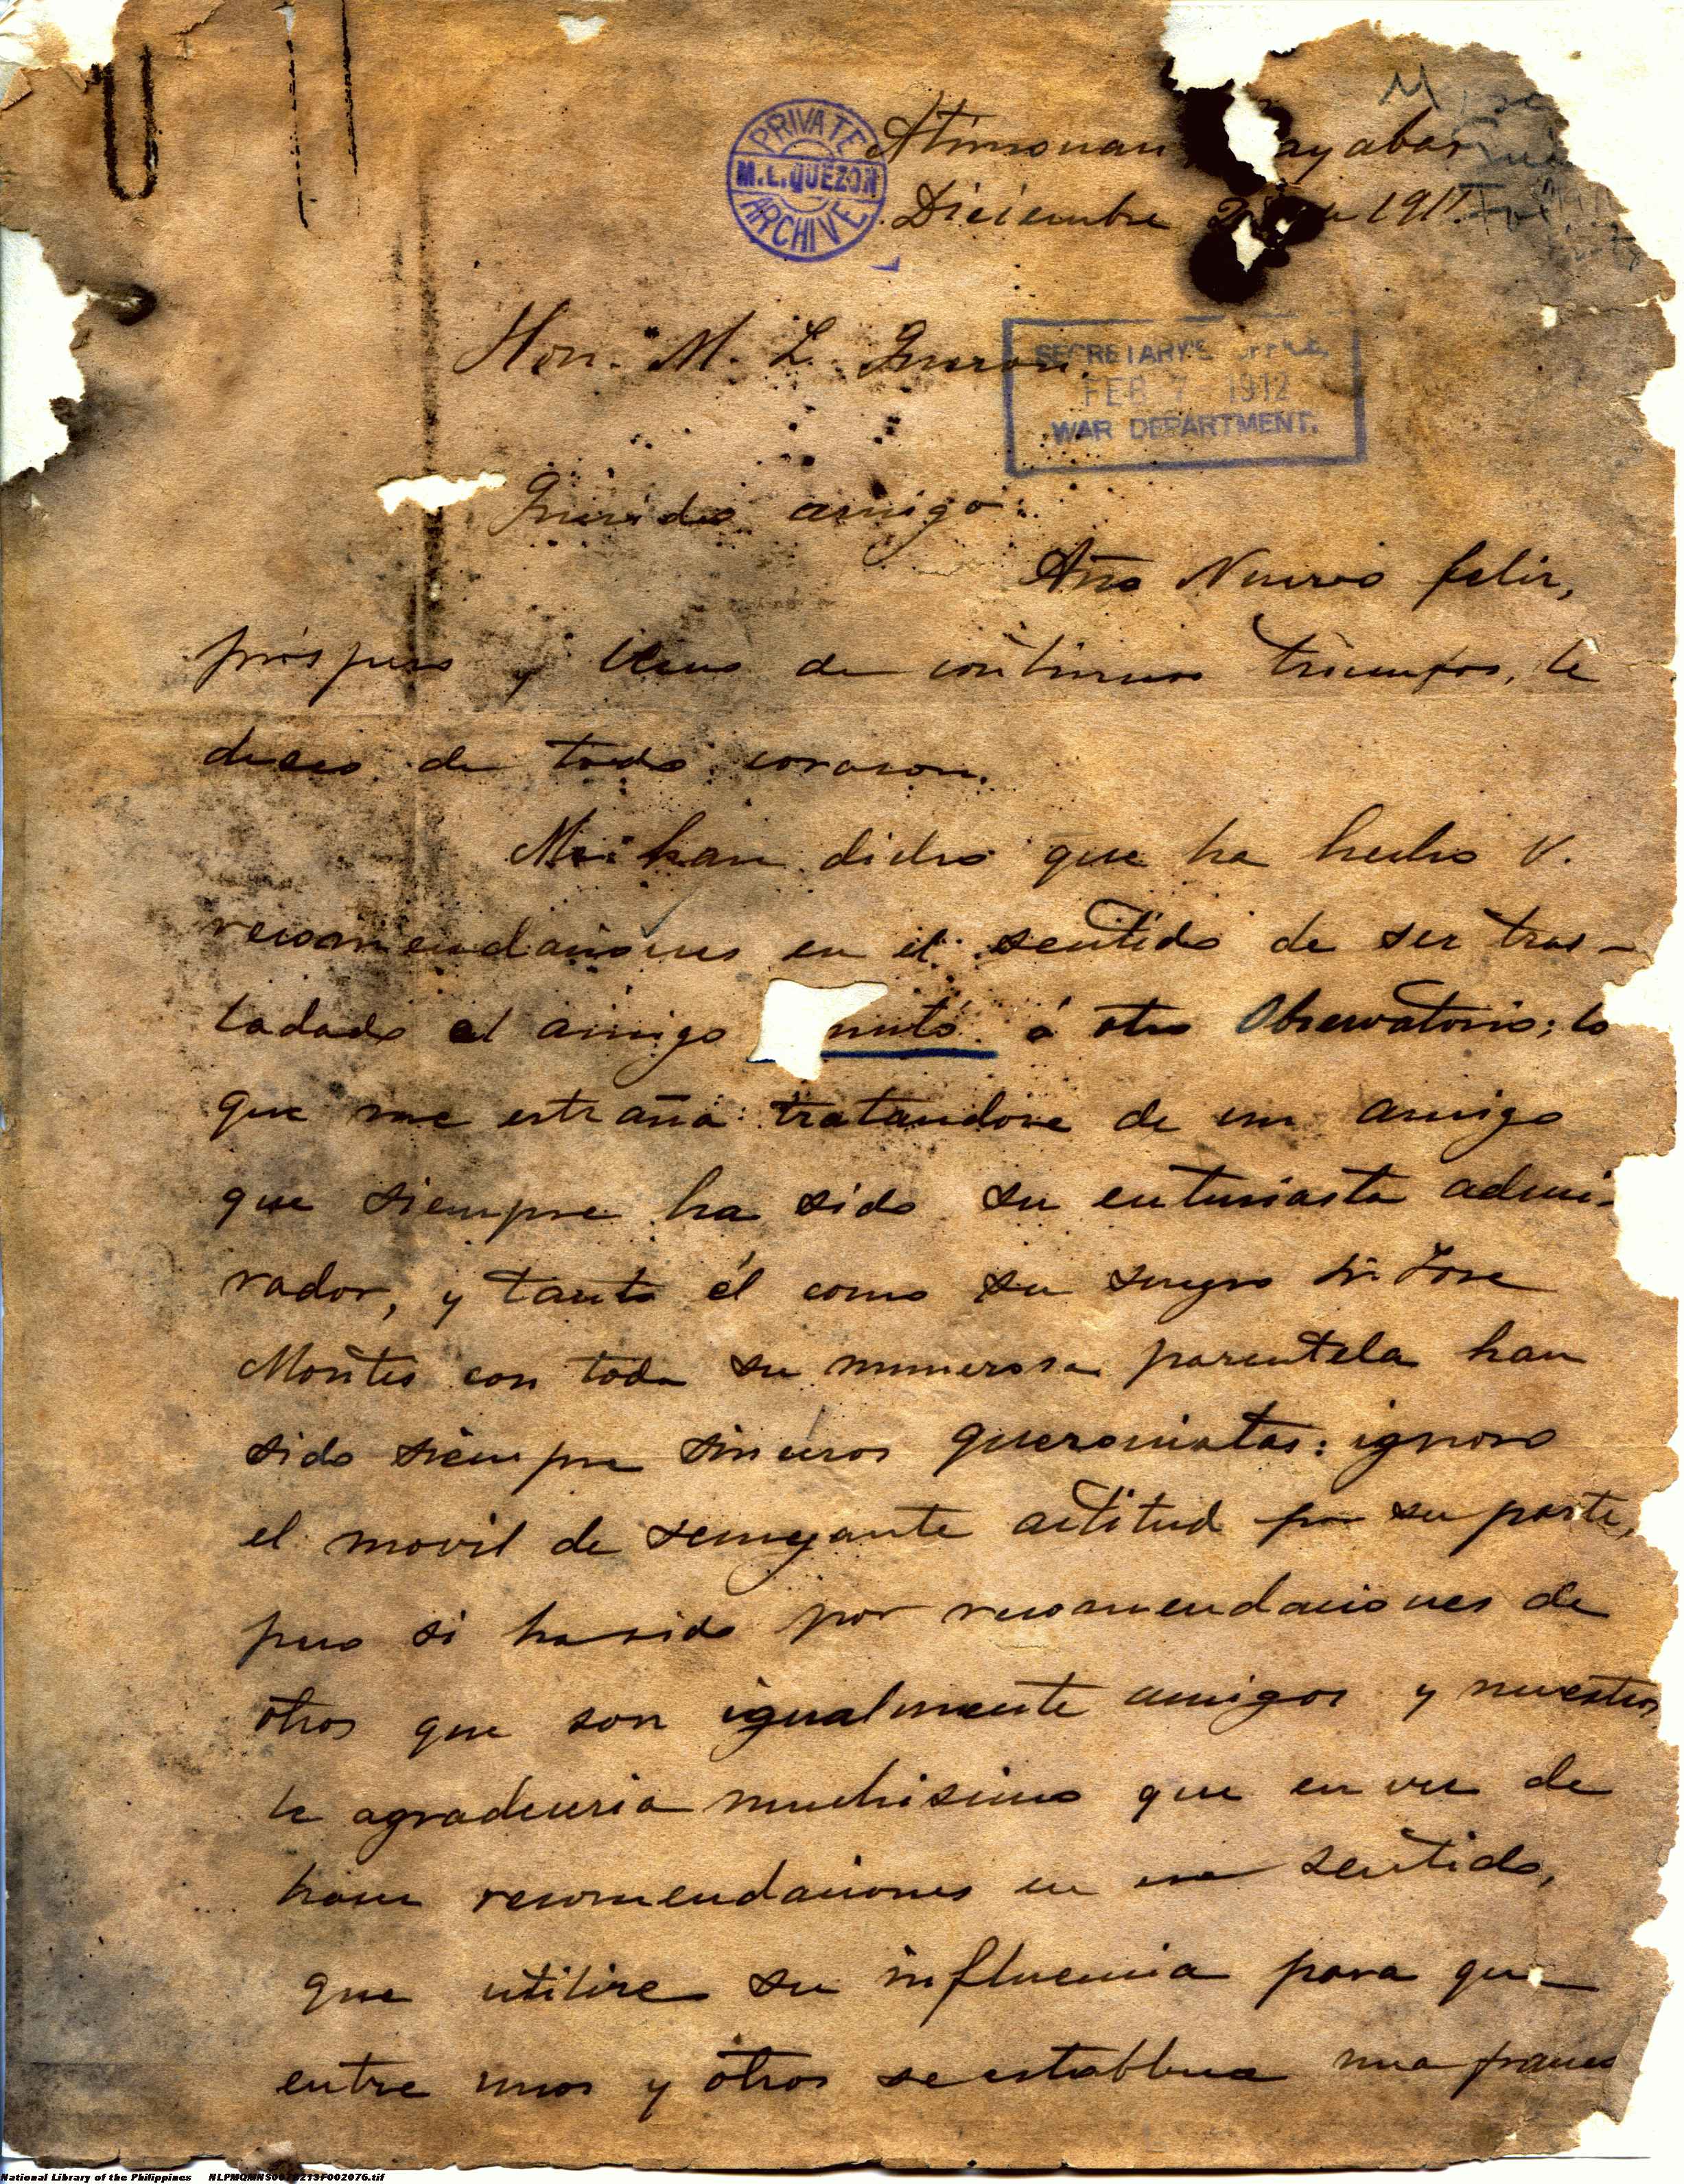 PRIVATE
M.L. QUEZON
ARCHIVE
Atimonan ayabas
Diciembre 1911.
Hon. M. L. Quezon.
SECRETARY'S OFFICE,
FEB 7 1912
WAR DEPARTMENT.
Querido amigo:
Año Nuevo feliz,
próspero y lleno de continuos triunfos, le
deseo de todo corazon.
Me han dicho que ha hecho V.
recomendaciones en el sentido de ser tras-
ladado el amigo nuto á otro Observatorio; lo
que me estraña tratandose de un amigo
que siempre ha sido su entusiasta admi-
rador, y tanto él como su suegro Sr. Jose
Montes con toda su numerosa parentela han
sido siempre sinceros quezonistas: ignoro
el movil de semejante actitud por su parte,
pero si ha sido por recomendaciones de
otros que son igualmente amigos y nuestros
le agradeceria muchisimo que en vez de
hacer recomendaciones en ese sentido,
que utilize su influencia para que
entre unos y otros se establezca una franca
National Library of the Philippines